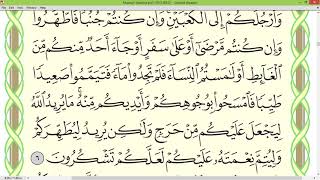 وَأَرْجُلَكُمْ إِلَى الْكَعْبَيْنِ وَإِن كُنتُمْ جُنُبًا فَاطَّهَّرُوا
وَإِن كُنتُم مَّرْضَىٰ أَوْ عَلَىٰ سَفَرٍ أَوْ جَاءَ أَحَدٌ مِّنكُم مِّنَ
الْغَائِطِ أَوْ لَامَسْتُمُ النِّسَاءَ فَلَمْ تَجِدُوا مَاءً فَتَيَمَّمُوا صَعِيدًا
طَيِّبًا فَامْسَحُوا بِوُجُوهِكُمْ وَأَيْدِيكُم مِّنْهُ مَا يُرِيدُ اللَّهُ
لِيَجْعَلَ عَلَيْكُم مِّنْ حَرَجٍ وَلَٰكِن يُرِيدُ لِيُطَهِّرَكُمْ
وَلِيُتِمَّ نِعْمَتَهُ عَلَيْكُمْ لَعَلَّكُمْ تَشْكُرُونَ ٦